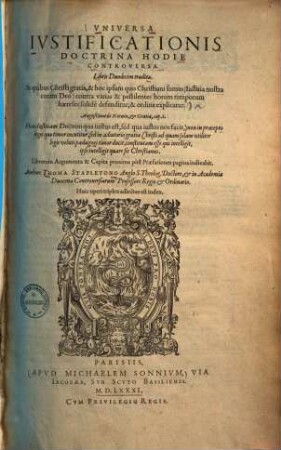 VNIVERSA
IVSTIFICATIONIS
DOCTRINA HODIE
CONTROVERSA
Libris Duodecim tradita.
In quibus Christi gratia, & hoc ipsum quo Christiani sumus, Iustitia nostra
coram Deo, contra varias & pestilentes horum temporum
hæreses solidè defenditur, & enixiùs explicatur.
Augustinus de Natura, & Gratia, cap. 1.
ipse intelligit quare sit Christianus.
Librorum Argumenta & Capita proxima post Præfationem pagina indicabit.
Authore THOMA STAPLETONO Anglo S. Theolog. Doctore, & in Academia
Duacena Controuersiarum Professore Regio & Ordinario.
Huic operi triplex adiectus est index.
PARISIIS,
APVD MICHAELEM SONNIVM, VIA
IACOBÆA, SVB SCVTO BASILIENSI.
M.D.LXXXI.
CVM PRIVILEGIO REGIS.